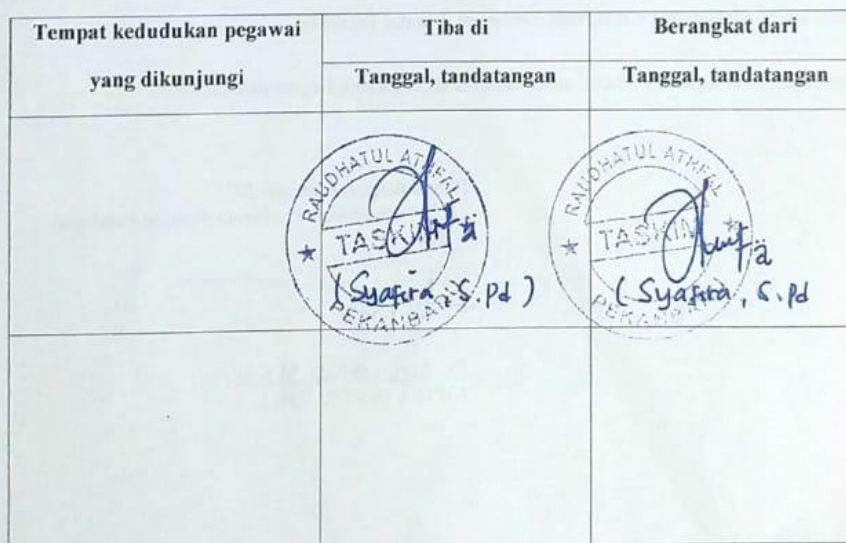 Tempat kedudukan pegawai
yang dikunjungi
Tiba di
Tanggal, tandatangan
Berangkat dari
Tanggal, tandatangan
RAUDHATUL ATHFAL
TASKIM
(Syafira, S.Pd)
PEKANBARU
RAUDHATUL ATHFAL
TASKIM
(Syafira, S.Pd
PEKANBARU